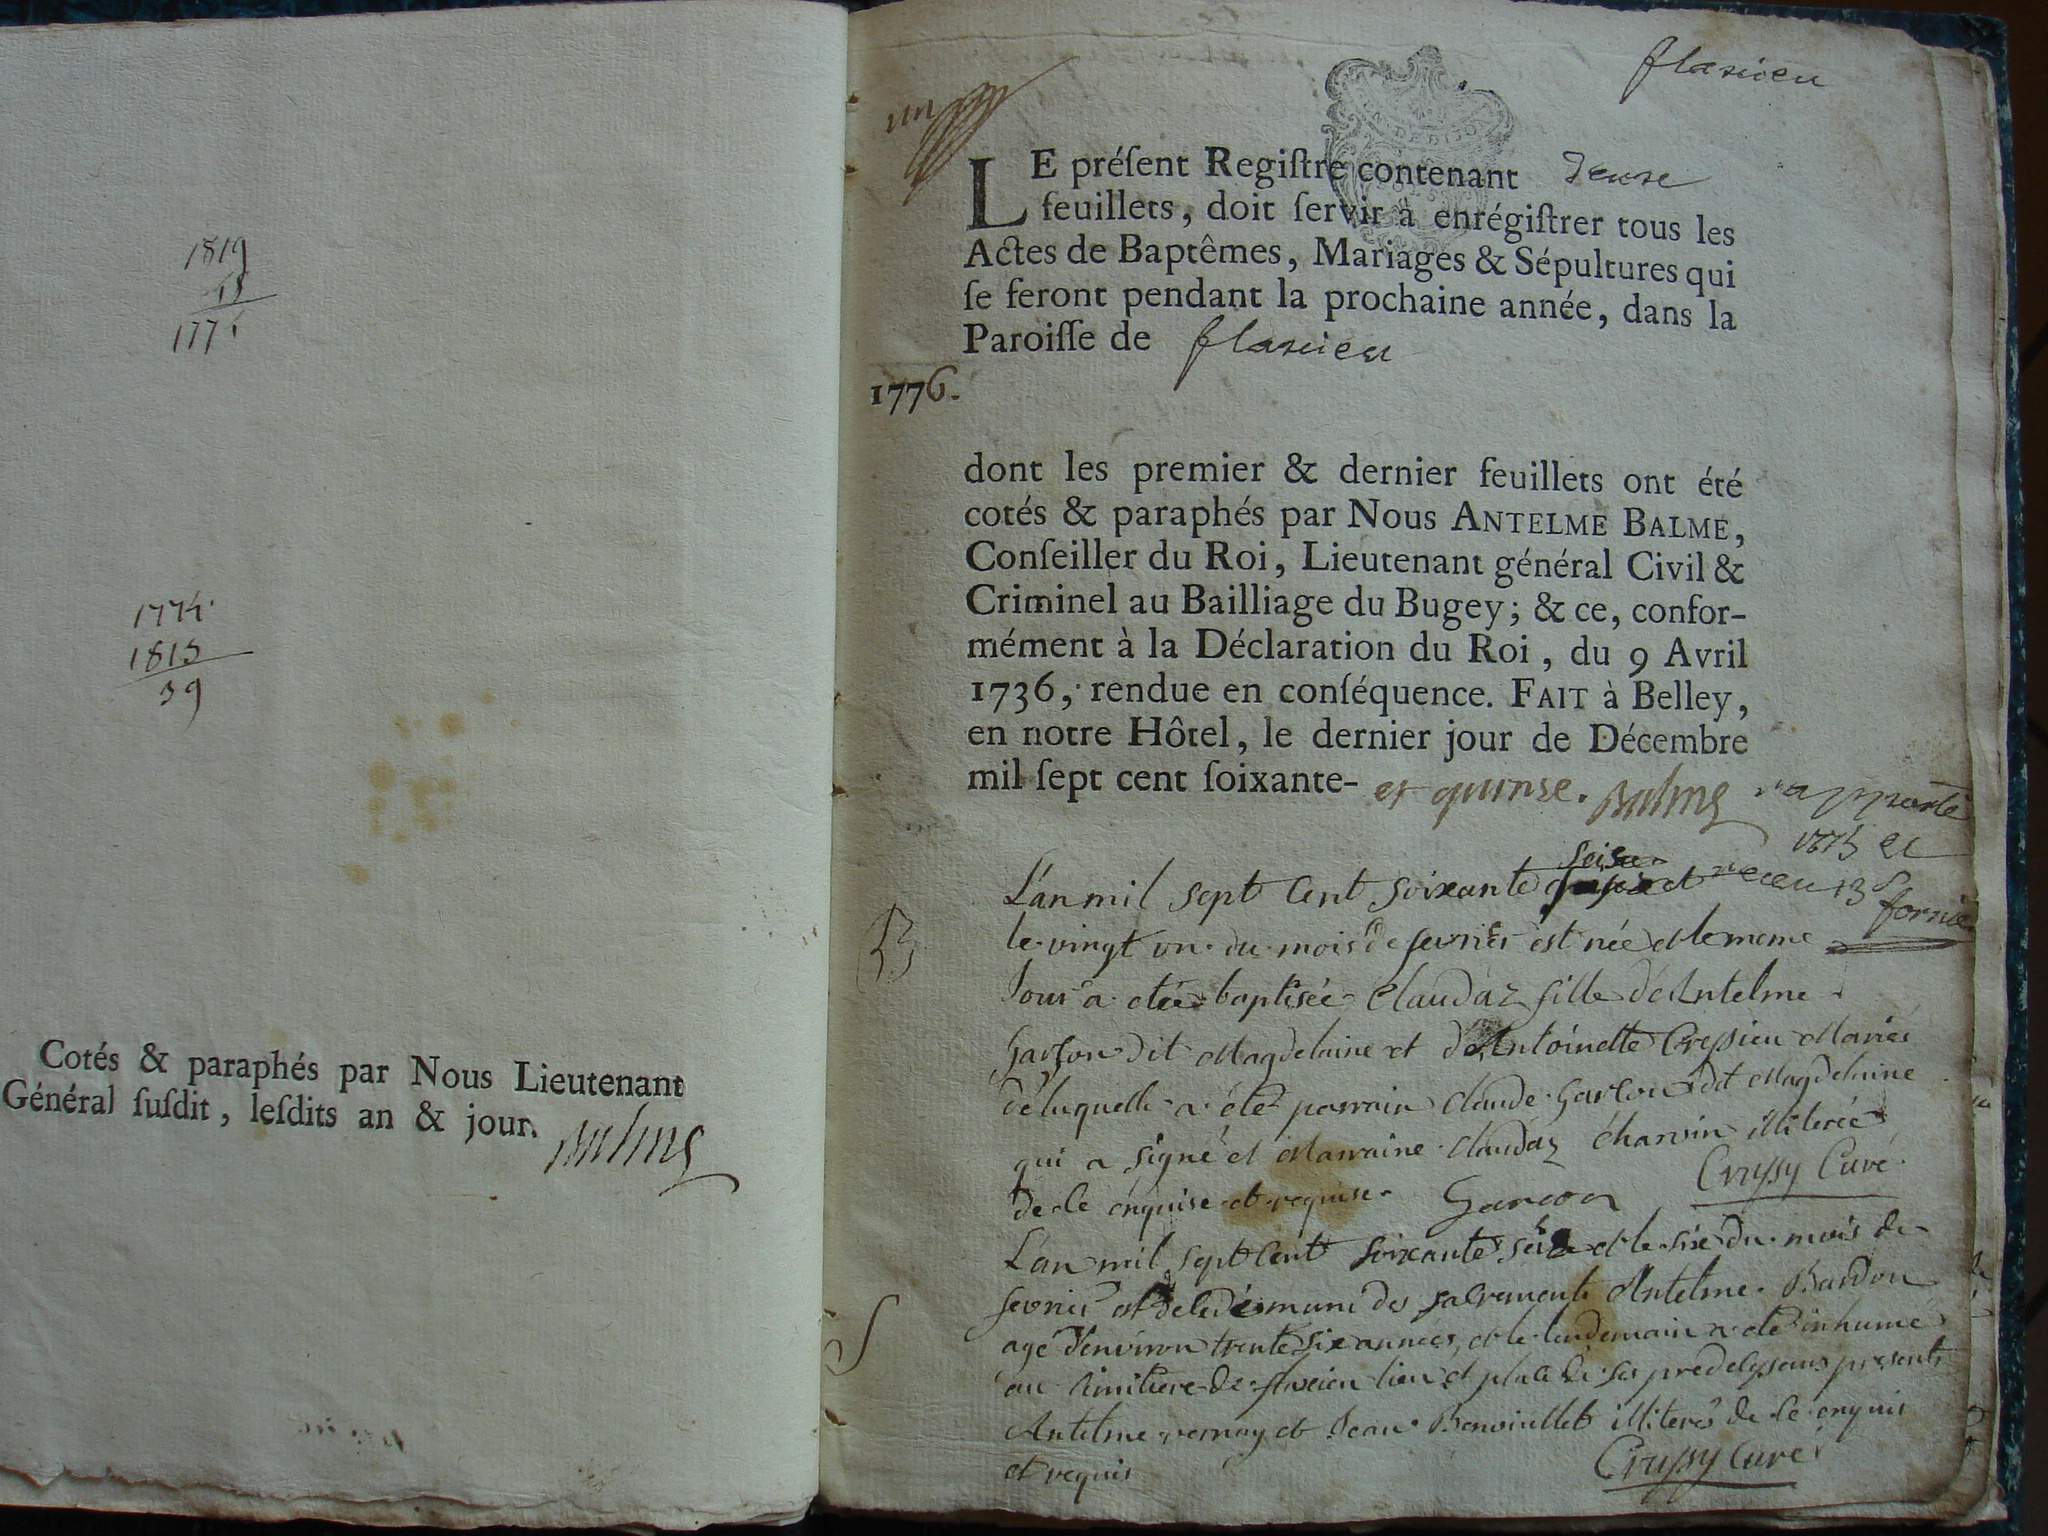 1819
1774
1815
39
Cotés & paraphés par Nous Lieutenant
Général ſuſdit, leſdits an & jour. Balme
flaxieu
un
LE préſent Regiſtre contenant
feuillets, doit ſervir à enrégiſtrer tous les
Actes de Baptêmes, Mariages & Sépultures qui
ſe feront pendant la prochaine année, dans la
Paroiſſe de flaxieu
1776.
dont les premier & dernier feuillets ont été
cotés & paraphés par Nous ANTELME BALME,
Conſeiller du Roi, Lieutenant général Civil &
Criminel au Bailliage du Bugey; & ce, confor-
mément à la Déclaration du Roi, du 9 Avril
1736, rendue en conſéquence. FAIT à Belley,
en notre Hôtel, le dernier jour de Décembre
mil ſept cent ſoixante- et quinse. Balme rapporté
1775 et
L'an mil sept Cent soixante seise et receu 13 s
B le vingt un du mois de fevrier est née et le meme
Jour a eteé baptisée Claudaz fille d'Antelme
Garçon dit Magdelaine et d'Antoinette Cressieu Mariés
de laquelle a été parrain Claude Garcon dit Magdelaine
qui a signé et Marraine Claudaz Charvin illiterée
de ce enquise et requise. Garcon Crussy Curé
L'an mil sept Cent soixante seise et le sixe du mois de
S fevrier est decedé muni des sacrements Antelme Bardon
agé d'environ trente six années, et le lendemain a eté inhumé
au Cimitiere de flaxieu lieu et place de ses predecesseurs presents
Antelme vernay et Jean Benvieullet illiterés de ce enquis
et requis Crussy Curé